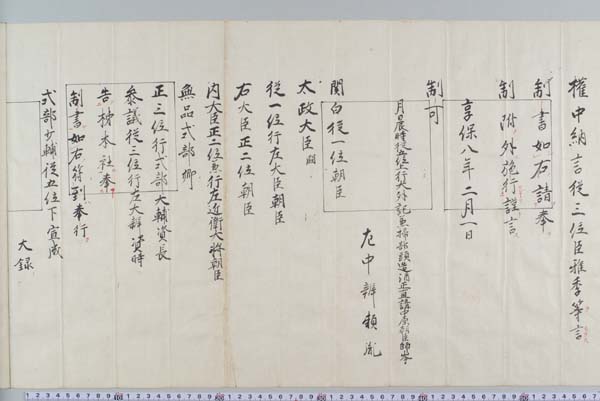 權中納言從三位臣雅季等言
制書如右請奉
制附外施行謹言
享保八年二月一日
制可
月日辰時從五位上行大外記兼掃部頭造酒正直講中原朝臣師岑
左中辨頼胤
関白從一位朝臣
太政大臣闕
從一位行左大臣朝臣
右大臣正二位朝臣
内大臣正二位兼行左近衛大將朝臣
無品式部卿
正三位行式部大輔資長
參議從三位行左大辨資時
告柿本社奉
制書如右符到奉行
式部少輔從五位下宣成
大録